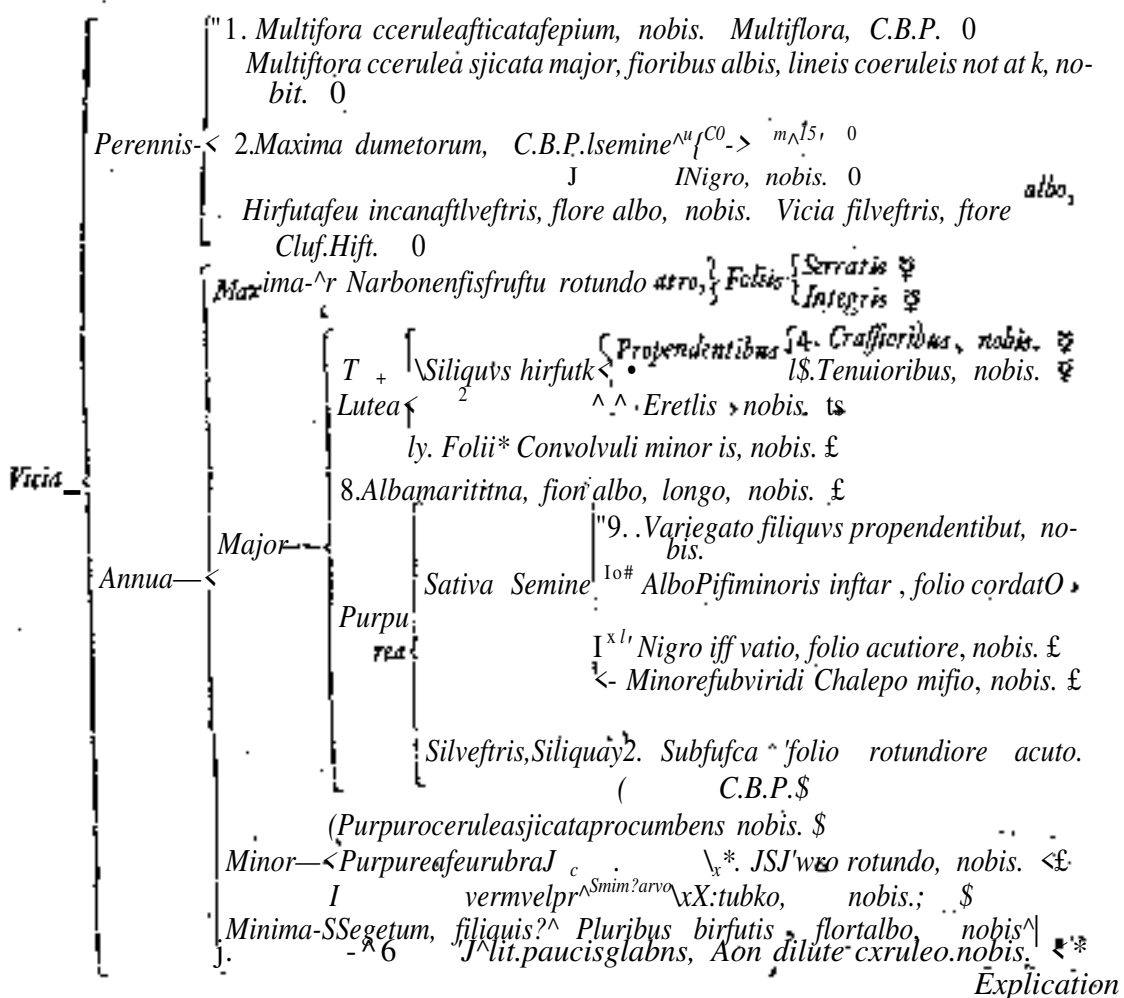 "1. Multifora cceruleafticatafepium, nobis. Multiflora, C.B.P. 0
Multiftora ccerulea sjicata major, fioribus albis, lineis coeruleis not at k, no-
bit. 0
Perennis-< 2.Maxima dumetorum, C.B.P.lsemine^u{C0-> m^15, 0
J INigro, nobis. 0
albo,
Hirfutafeu incanaftlveftris, flore albo, nobis. Vicia filveftris, ftore
Cluf.Hift. 0
Maxima-^r Narbonenfisfruftu rotundo atro,} Foliis {Serratis ☿
{Integris ☿
Propendentibus {4. Craffioribus, nobis. ☿
T + \Siliquvs hirfutk< • l$.Tenuioribus, nobis. ☿
Lutea< 2 ^.^. Eretlis , nobis. ts
ly. Folii* Convolvuli minor is, nobis. £
Vicia
8.Albamarititna, fion albo, longo, nobis. £
"9. .Variegato filiquvs propendentibut, no-
bis.
Major
Annua—<
Sativa Semine Io# AlboPifiminoris inftar , folio cordatO
Purpu
rea
I x l' Nigro iff vatio, folio acutiore, nobis. £
<- Minorefubviridi Chalepo mifio, nobis. £
Silveftris,Siliquay2. Subfufca ^ 'folio rotundiore acuto.
( C.B.P.$
(Purpuroceruleasjicataprocumbens nobis. $
Minor—<PurpureafeurubraJ c . \x*. JSJ'wro rotundo, nobis. <£
I vermvelpr^Smim?arvo\xX:tubko, nobis.; $
Minima-SSegetum, filiquis?^ Pluribus birfutis , flortalbo, nobis^|
j. -^6 'J^lit.paucisglabns, Aon dilute cxruleo.nobis. <*
Explication